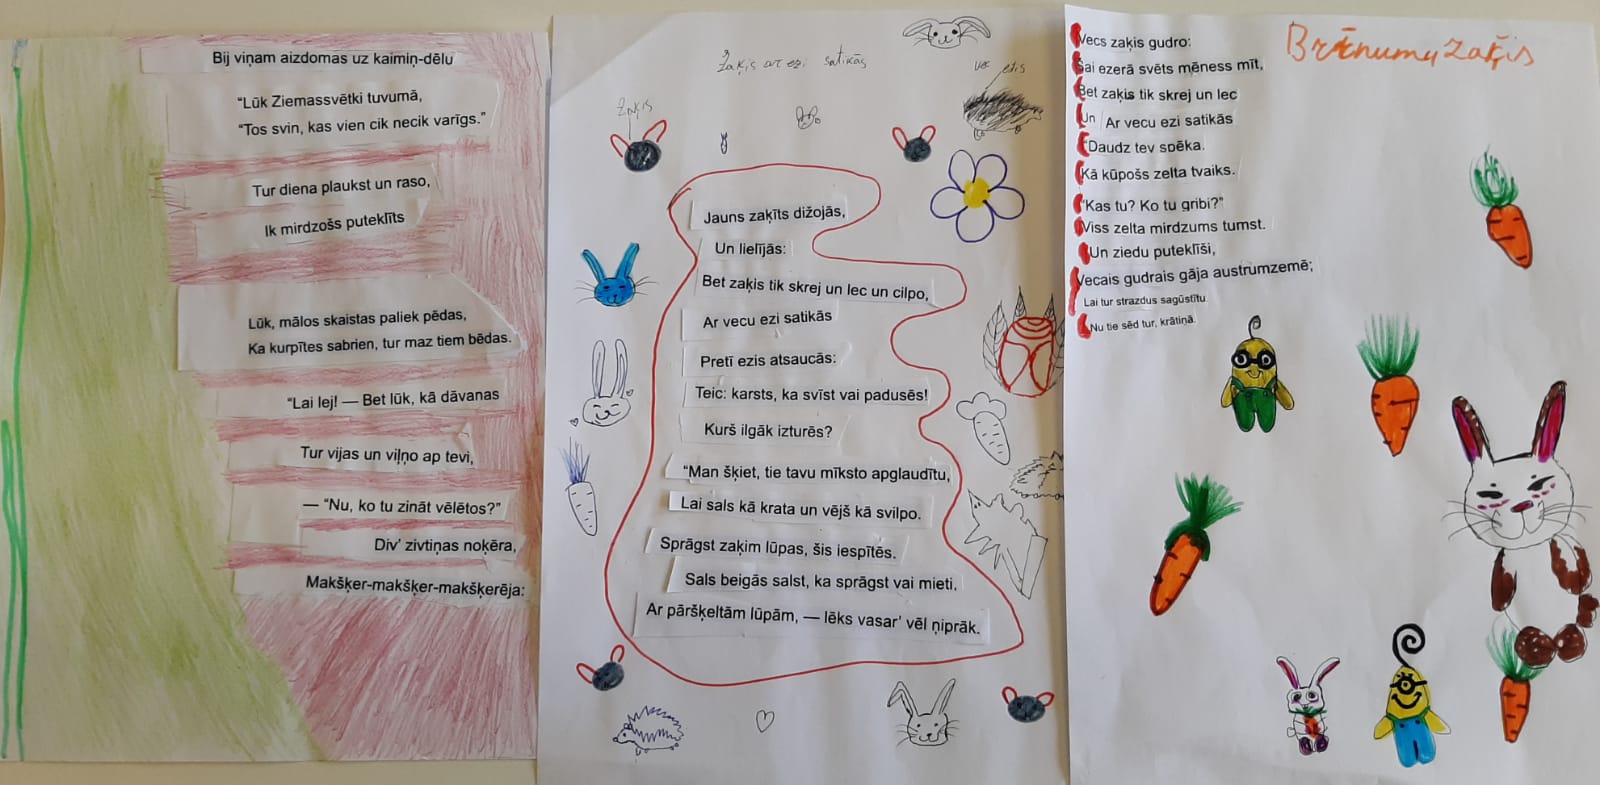 Bij viņam aizdomas uz kaimiņ-dēlu
“Lūk Ziemassvētki tuvumā,
“Tos svin, kas vien cik necik varīgs.”
Tur diena plaukst un raso,
Ik mirdzošs puteklīts
Lūk, mālos skaistas paliek pēdas,
Ka kurpītes sabrien, tur maz tiem bēdas.
“Lai lej! — Bet lūk, kā dāvanas
Tur vijas un viļņo ap tevi,
— “Nu, ko tu zināt vēlētos?”
Div’ zivtiņas noķēra,
Makšķer-makšķer-makšķerēja:
Zaķis ar ezi satikās
Zaķis
vec ezis
Jauns zaķīts dižojās,
Un lielījās:
Bet zaķis tik skrej un lec un cilpo,
Ar vecu ezi satikās
Pretī ezis atsaucās:
Teic: karsts, ka svīst vai padusēs!
Kurš ilgāk izturēs?
“Man šķiet, tie tavu mīksto apglaudītu,
Lai sals kā krata un vējš kā svilpo.
Sprāgst zaķim lūpas, šis iespītēs.
Sals beigās salst, ka sprāgst vai mieti,
Ar pāršķeltām lūpām, — lēks vasar’ vēl ņiprāk.
Brīnumu zaķis
Vecs zaķis gudro:
Šai ezerā svēts mēness mīt,
Bet zaķis tik skrej un lec
Un Ar vecu ezi satikās
“Daudz tev spēka.
Kā kūpošs zelta tvaiks.
“Kas tu? Ko tu gribi?”
Viss zelta mirdzums tumst.
Un ziedu puteklīši,
Vecais gudrais gāja austrumzemē;
Lai tur strazdus sagūstītu.
Nu tie sēd tur, krātiņā.